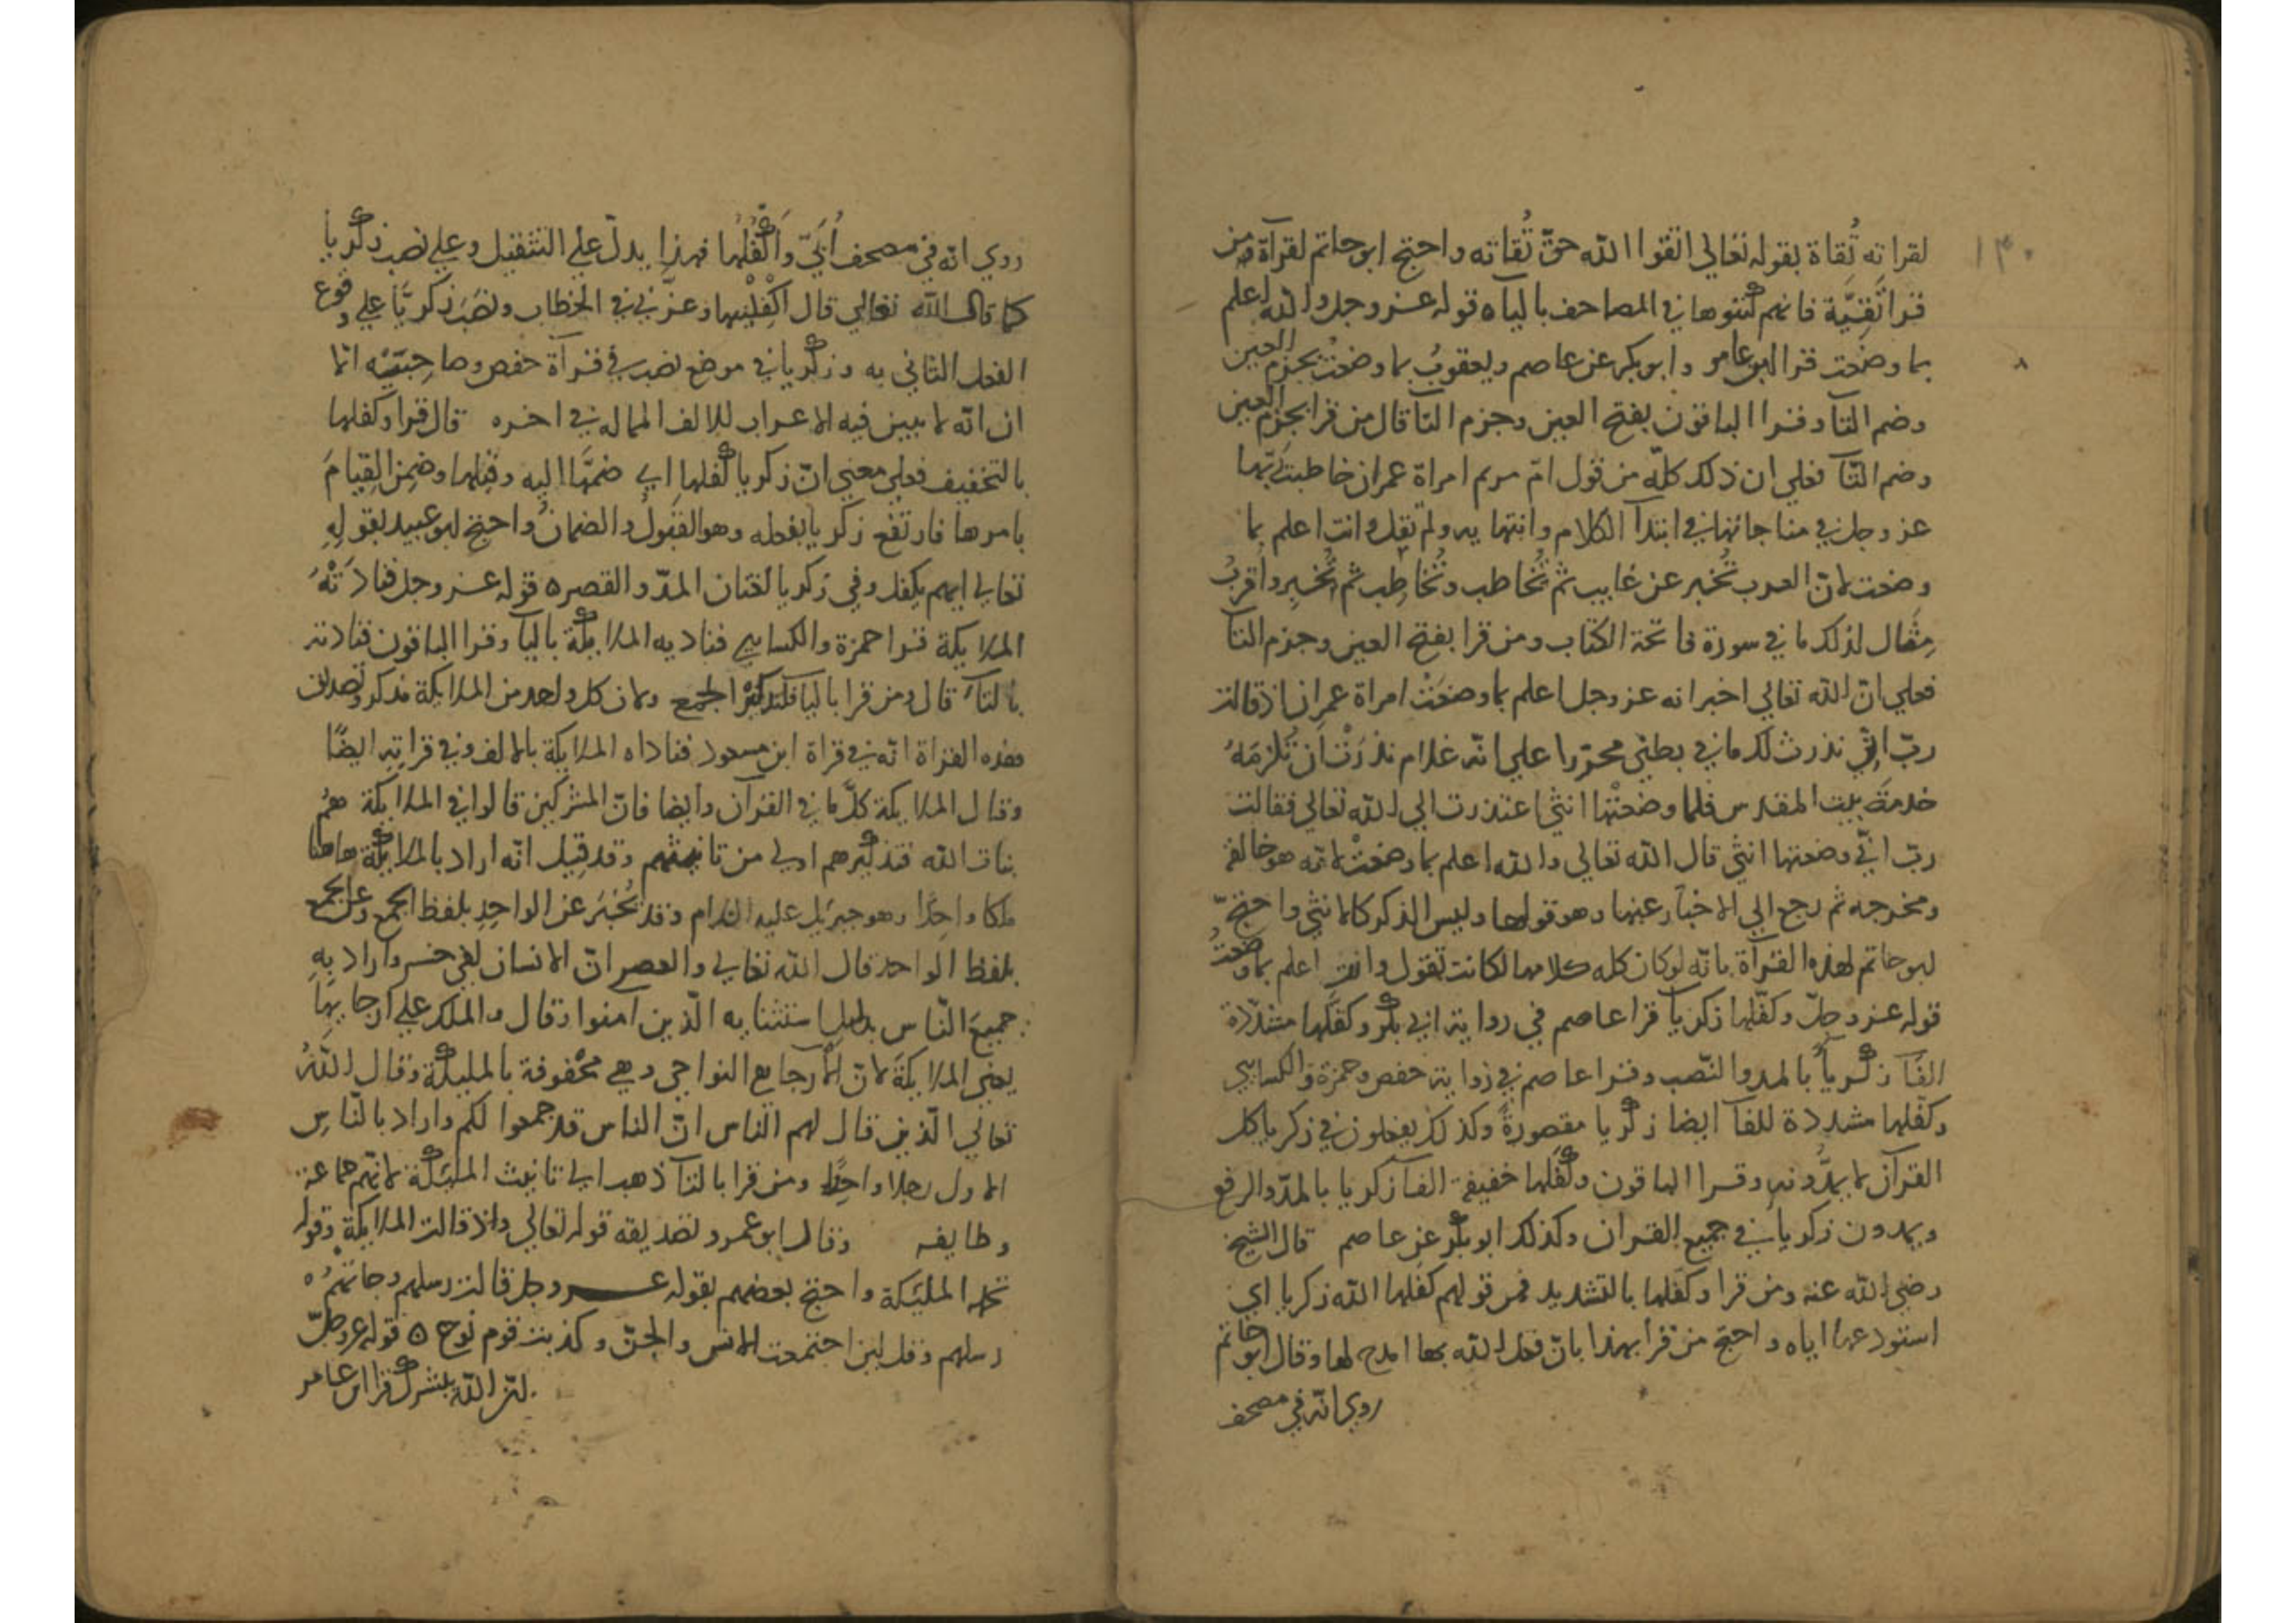 ١٣٠
لقراته تُقاة بقوله تعالي اتقوا الله حقّ تُقاته واحتج ابو حاتم لقرآة من
قرا تَقِيَّة فانهم كتبوها في المصاحف باليا ه قوله عز وجل والله اعلم
بما وضعت قرا ابن عامر وابو بكر عن عاصم ويعقوب بما وضعتُ بجزم العين
وضم التآ وقرا الباقون بفتح العين وجزم التآ قال من قرا بجزم العين
وضم التآ فعلي ان ذلك كلّه من قول امّ مريم امراة عمران خاطبت ربّها
عز وجل في مناجاتها في ابتدآ الكلام وانتهايه ولم تقل وانت اعلم بما
وضعت لانّ العرب تُخبر عن غايب ثم تُخاطب وتُخاطِب ثم تُخبِر واقربُ
مِثَال لذلك ما في سورة فاتحة الكتاب ومن قرا بفتح العين وجزم التآ
فعلي انّ الله تعالي اخبر انه عز وجل اعلم بما وضعَتْ امراة عمران اذ قالت
ربّ اِنّي نذرت لك ما في بطني محرّرا علي انّه غلام نذرَتْ ان تُلزمَهُ
خدمةَ بيت المقدس فلما وضعتْها انثي اعتذرت الي الله تعالي فقالت
ربّ انّي وضعتها انثي قال الله تعالي والله اعلم بما وضعتْ لانّه هو خالقه
ومخرجه ثم رجع الي الاخبار عنها وهو قولها وليس الذكر كالانثي واحتجّ
ابو حاتم لهذه القرآة بانّه لو كان كله كلامها لكانت تقول وانت اعلم بما وضعتُ
قوله عز وجلّ وكفّلها زكريآ قرا عاصم في رواية ابي بكر وكفّلها مشدّدة
الفآ زكريآ بالمد والنّصب وقرا عاصم في رواية حفص وحمزة والكسايي
وكفّلها مشددة للفآ ايضا زكريا مقصورةً وكذلك يفعلون في زكريا كل
القرآن لا يمدُّونه وقرا الباقون وكَفَلها خفيفة الفآ زكريا بالمدّ والرفع
ويمدون زكريا في جميع القران وكذلك ابو بكر عن عاصم قال الشيخ
رضي الله عنه ومن قرا وكفّلها بالتشديد فمن قولهم كفّلها الله زكريا اي
استودعها اياه واحتج من قرا بهذا بانّ فعل الله بها امدح لها وقال ابو حاتم
روي انّه في مصحف
روي انّه في مصحف أُبَيّ وَأَكْفَلَها فهذا يدلّ علي التثقيل وعلي نصب زكريا
كما قال الله تعالي قال اَكْفِلْنِيها وعزّني في الخطاب ونصَب زكريّا علي وقوع
الفعل الثاني به وزكريا في موضع نصب في قرآة حفص وصاحِبَيْه الا
ان انّه لا يبين فيه الاعراب للالف الممالة في اخره قال قرا وكفلها
بالتخفيف فعلي معني انّ زكريا كفلها اي ضمَّها اليه وقبِلها وضمِن القِيامَ
بامرها فارتفع زكريا بفعله وهو القَبُولُ والضمانُ واحتج ابو عبيد بقولِهِ
تعالي ايهم يكفل وفي زكريا لغتان المدّ والقصر ه قوله عز وجل فنادَتْهُ
الملايكة قرا حمزة والكسايي فناديه الملايكة باليآ وقرا الباقون فنادته
بالتآ قال ومن قرا باليا فلتذكير الجمع ولان كل واحد من الملايكة مذكر وتصديق
هذه القراة انّه في قراة ابن مسعود فناداه الملايكة بالالف وفي قراتِه ايضًا
وقال الملايكة كلّ ما في القرآن وايضا فانّ المشركين قالوا في الملايكة هم
بنات الله فتذكيرهم اولي من تانيثهم وقد قيل انّه اراد بالملايكة هاهنا
ملكا واحِدًا وهو جبريل عليه السلام وقد يُخْبَر عن الواحِدِ بلفظ الجمع وعن الجمع
بلفظ الواحد قال الله تعالي والعصر انّ الانسان لفي خسر واراد بِهِ
جميعَ النّاس بدليل استثنايه الّذين امنوا وقال والملك علي ارجايها
يعني الملايكة لانّ الأرجا هي النواحي وهي محْفوفة بالمليكة وقال اللهُ
تعالي الّذين قال لهم الناس انّ الناس قد جمعوا لكم واراد بالنّاسِ
الاول رجلا واحِدًا ومن قرا بالتآ ذهب الي تانيث المليكة لانّهم جماعة
وطايفه وقال ابو عمرو تصديقه قوله تعالي واذ قالت الملايكة وقوله
تحمله المليكة واحتج بعضهم بقوله عز وجل قالت رسلهم وجاتهمُ ه
رسلهم وقل لين اجتمعت الانس والجنّ وكذبت قوم نوح ه قوله عز وجلّ
انّ الله يبشرك قرا ابن عامر